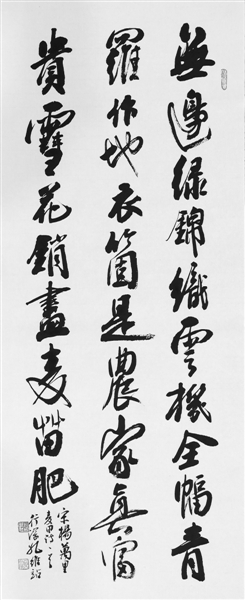 無邊綠錦織雲機全幅青
羅作地衣箇是農家真富
貴雪花銷盡麥苗肥
宋楊萬里